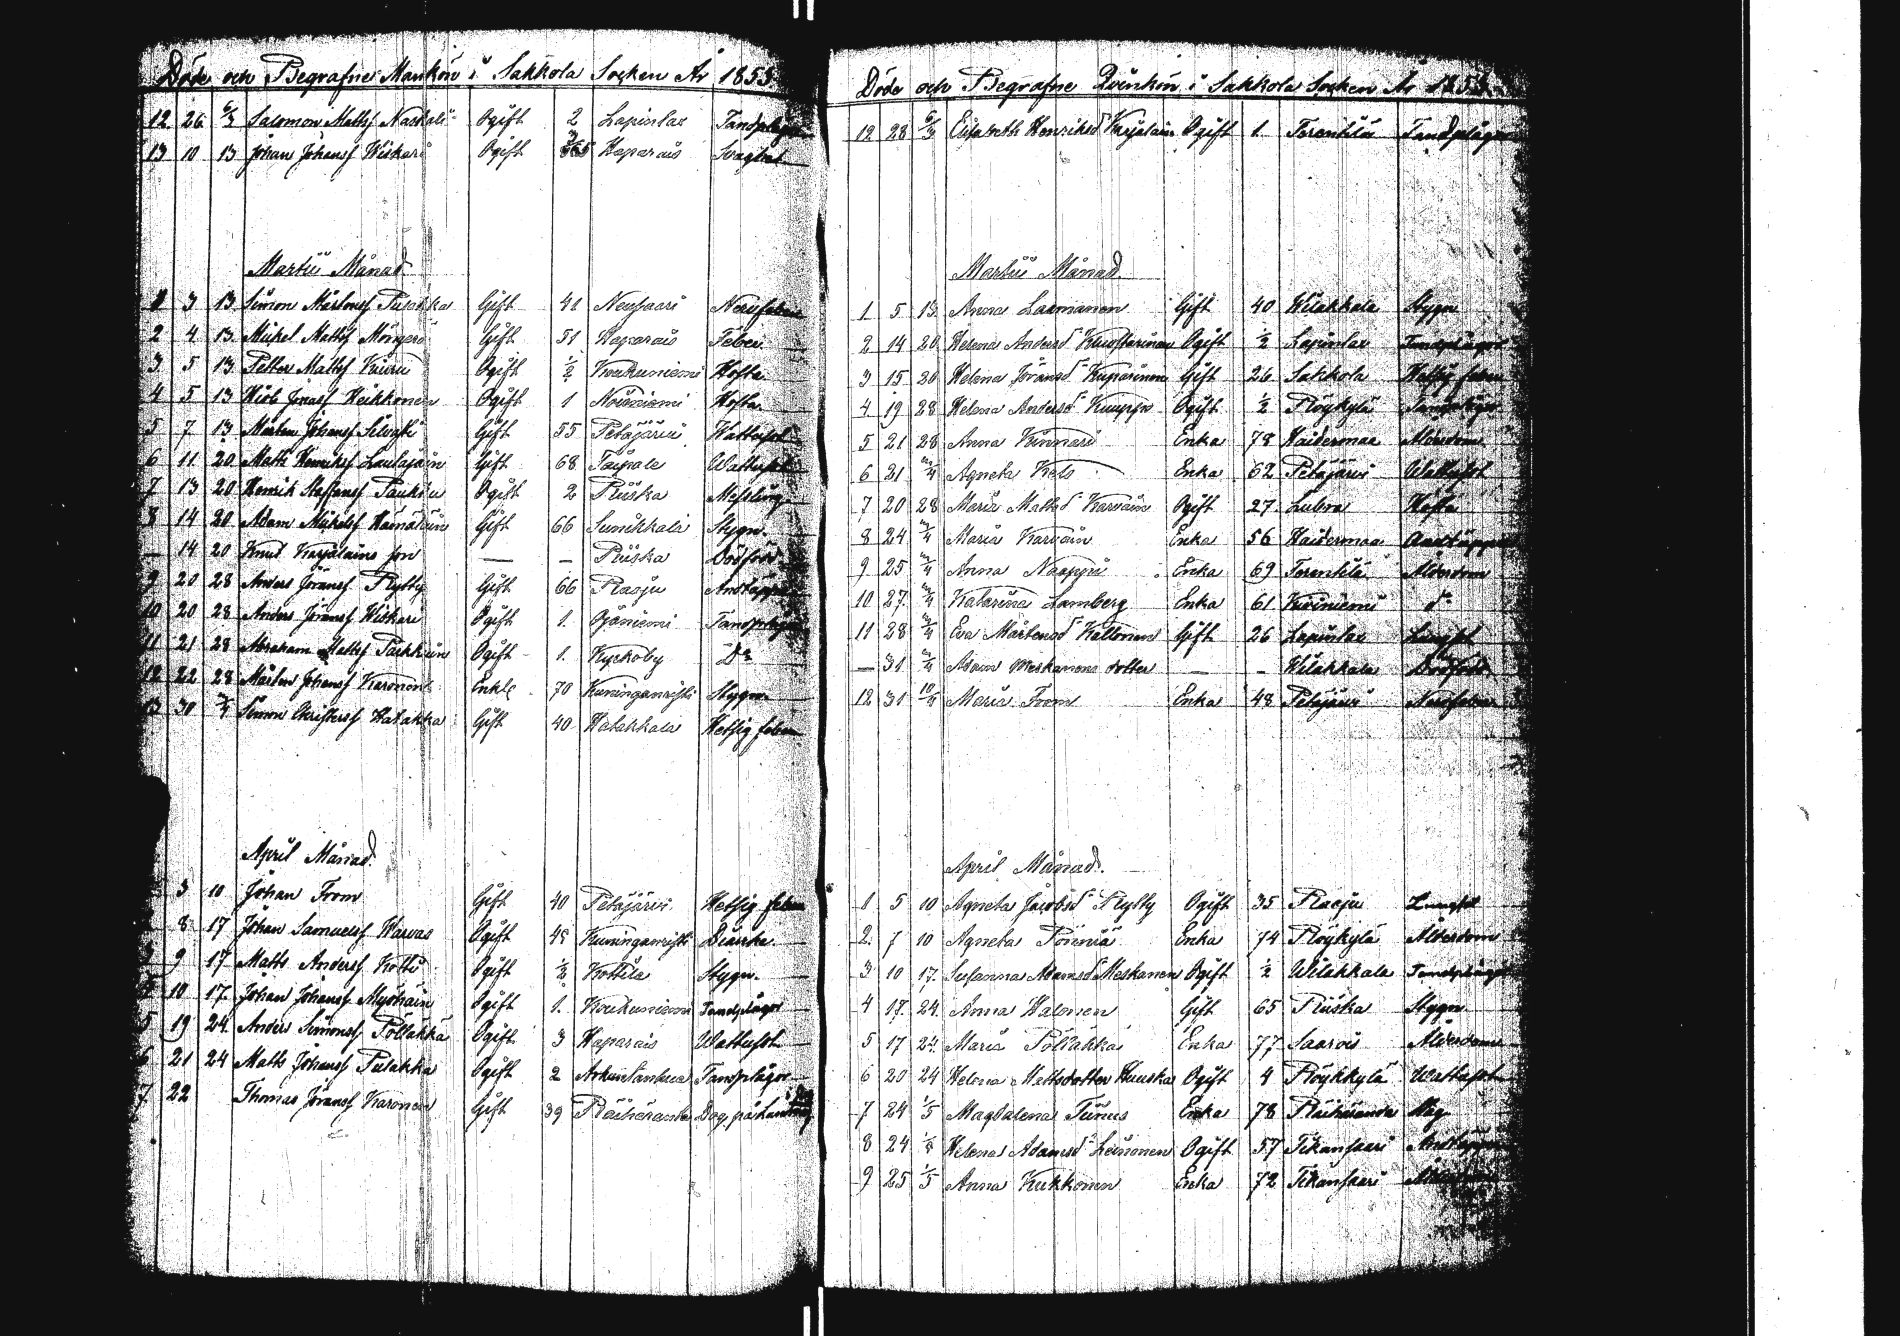 Döde och Begrafne Mankön i Sakkola Socken År 1853
12 26 6/3 Salomon Matts Naskali Ogift 2 Lapinlax Tandplågor
13 10 13 Johan Johansf Wiskari Ogift Haparais Svaghet
Martii Månad
1 3 13 Simon Mårtensf Pulakka Gift 41 Neusaari Nervfeber
2 4 13 Mickel Mattsf Gift 51 Haparais Feber
3 5 13 Petter Mattsf Kiuru Ogift 1/2 Koukuniemi Hosta
4 5 13 Hiob Jonasf Heikkonen Ogift 1 Hosta
5 7 13 Mårten Johansf Gift 55 Petäjärvi Wattusot
6 11 20 Matts Henriksf Laulajain Gift 68 Taipale Wattusot
7 13 20 Henrik Staffansf Paukku Ogift 2 Riiska Messling
8 14 20 Adam Mickelsf Hämäläin Gift 66 Sunikkala Stygn
— 14 20 Knut Karjalains son — — Riiska Dödfödd
9 20 28 Anders Göransf Rytty Gift 66 Raaju Andtäppa
10 20 28 Anders Göransf Wiskari Ogift 1. Ojaniemi Tandplågor
11 21 28 Abraham Mattsf Ogift 1. Kyrkoby Do
12 22 28 Mårten Johansf Karonen Enkl. 70 Kuninganristi Stygn
13 30 3/4 Simon Christersf Hatakka Gift 40 Hatakkala Hetsig feber
April Månad
3 10 Johan From Gift 40 Petäjärvi Hetsig feber
8 17 Johan Samuelsf Warvas Ogift 45 Kuninganristi Diarrhe
9 17 Matts Andersf Kotti Ogift 1/2 Kottila Stygn
10 17 Johan Johansf Ogift 1. Koukuniemi Tandplågor
5 19 24 Anders Simonsf Pölläkkä Ogift 3 Haparais Wattusot
6 21 24 Matts Johansf Pulakka Ogift 2 Tandplågor
7 22 Thomas Göransf Karonen Gift 39 Räihäranda Dog på
Döde och Begrafne Qvinkön i Sakkola Socken År 1853
12 28 6/3 Elisabeth Henriksd Karjalain Ogift 1. Terentilä Tandplågor
Martii Månad
1 5 13 Anna Laamanen Gift 40 Wilakkala Stygn
2 14 20 Helena Andersd Ogift 1/2 Lapinlax Tandplågor
3 15 20 Helena Göransd Kuparinen Gift 26 Sakkola Hetsig feber
4 19 28 Helena Andersd Ogift 1/2 Röykylä Tandplågor
5 21 28 Anna Kinnari Enka 78 Haidermaa Ålderdom
6 21 3/4 Agneta Enka 62 Petäjärvi Wattusot
7 20 28 Maria Mattsd Karvain Ogift 27 Hosta
8 24 3/4 Maria Karvain Enka 56 Haidermaa Andtäppa
9 25 3/4 Anna Naappi Enka 69 Terentilä Ålderdom
10 27 3/4 Katarina Lamberg Enka 61 Kiviniemi do
11 28 3/4 Eva Mårtensd Kallonen Gift 26 Lapinlax Lungsot
— 31 3/4 Adam Meskanens dotter — — Wilakkala Dödfödd
12 31 10/4 Maria From Enka 48 Petäjärvi Nervfeber
April Månad.
1 5 10 Agneta Jacobsd Rytty Ogift 35 Raaju Lungsot
2. 7 10 Agneta Pönniä Enka 74 Röykylä Ålderdom
3 10 17 Susanna Adamsd Meskanen Ogift 1/2 Wilakkala Tandplågor
4 17 24 Anna Halonen Gift 65 Riiska Stygn
5 17 24 Maria Pöllakka Enka 77 Saarois Ålderdom
6 20 24 Helena Mattsdotter Kuuska Ogift 4 Röykkylä Wattusot
7 24 1/5 Magdalena Tiinus Enka 78 Räihäranda
8 24 1/5 Helena Adamsd Leinonen Ogift 57 Tikansaari Andtäppa
9 25 1/5 Anna Kukkonen Enka 72 Tikansaari